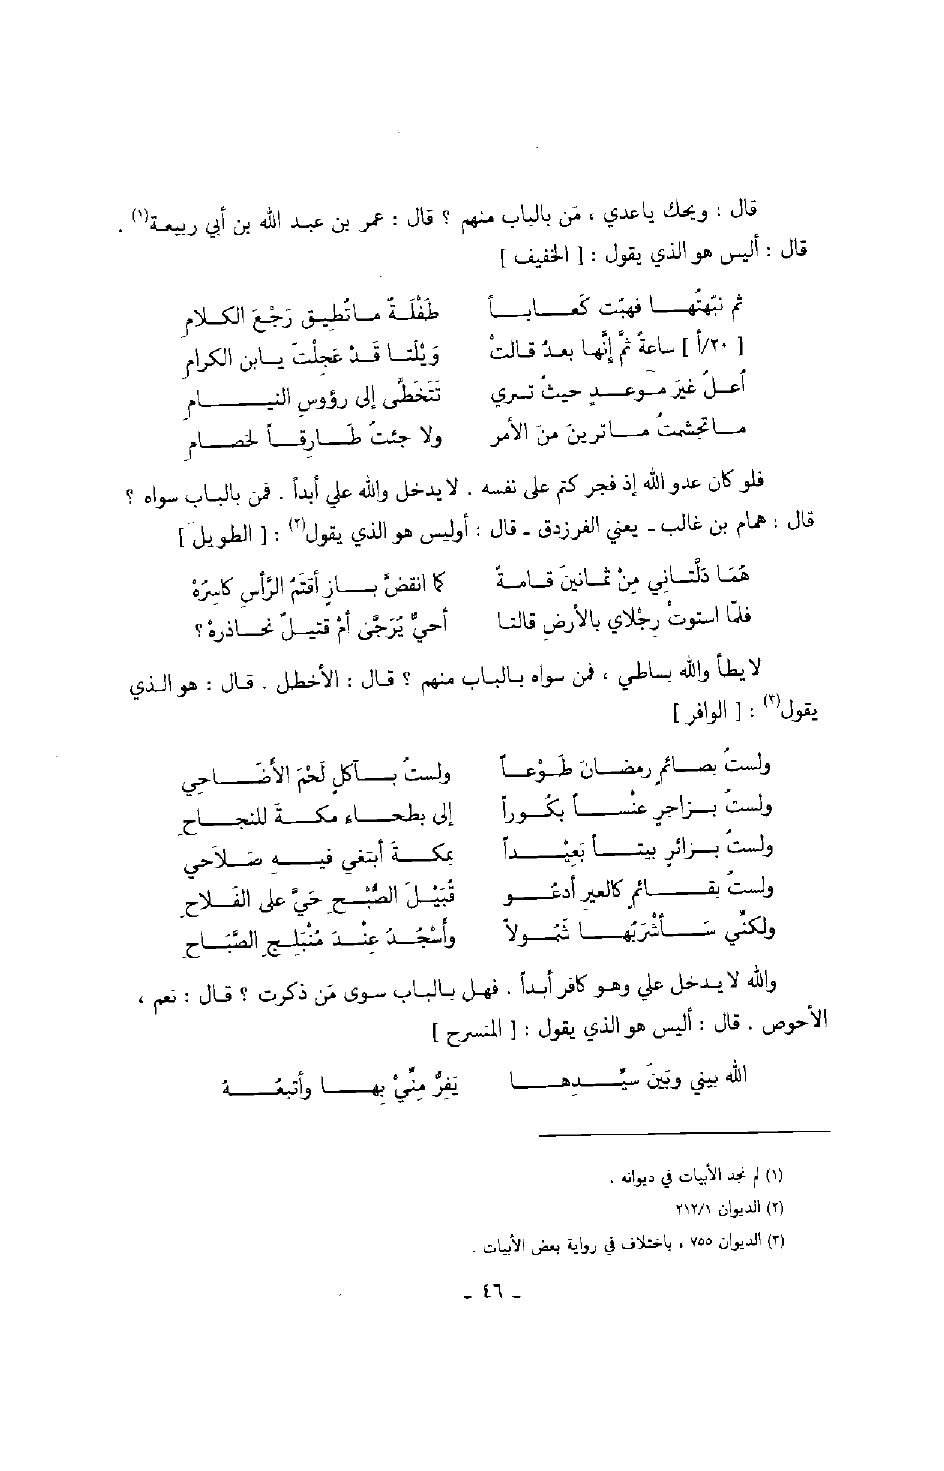 قال : ويحك ياعدي ، مَن بالباب منهم ؟ قال : عمر بن عبد الله بن أبي ربيعة(١) .
قال : أليس هو الذي يقول : [ الخفيف ]
ثم نبّهتُهـا فهبّت كَعـابـاً طَفْلَةً مـاتُطيق رَجْعَ الكلامِ
[ ٢٠/أ ] ساعةً ثمَّ إنَّها بعدُ قالتْ وَيْلَتـا قَـدْ عَجِلْتَ يـابن الكرامِ
أعلى غيرِ موعدٍ حيثُ تسري تَتَخَطَّى إلى رؤوسِ النيـامِ
مـاتجشمتُ مـاترينَ منَ الأمر ولا جئتُ طـارقـاً لخصـامِ
فلو كان عدو الله إذ فجر كتم على نفسه . لايدخل والله علي أبداً . فمن بالباب سواه ؟
قال : همام بن غالب ـ يعني الفرزدق ـ قال : أوليس هو الذي يقول(٢) : [ الطويل ]
هُمَا دَلَّتـاني مِنْ ثمـانينَ قـامـةً كما انقضَّ بـازٍ أقتَمُ الرَّأسِ كاسِرُهْ
فلمّا استوتْ رِجْلاي بالأرضِ قالتا أحيٌّ يُرَجَّى أمْ قتيـلٌ نحـاذرهْ ؟
لايطأ والله بساطي ، فمن سواه بالباب منهم ؟ قال : الأخطل . قال : هو الذي
يقول(٣) : [ الوافر ]
ولستُ بصـائمٍ رمضـانَ طَـوْعـاً ولستُ بـآكلٍ لَحْمَ الأضـاحي
ولستُ بـزاجرٍ عَنْسـاً بكُـوراً إلى بطحـاء مكـةَ للنجـاحِ
ولستُ بـزائرٍ بيتـاً بَعِيْـداً بمكـةَ أبتغي فيـه صَـلاحي
ولستُ بقـائمٍ كالعيرِ أدعـو قُبَيْلَ الصُّبْـحِ حَيَّ على الفَـلاحِ
ولكنِّي سـأشْرَبُهـا شَمُـولاً وأسْجُـدُ عِنْـدَ مُنْبَلِـجِ الصَّبَـاحِ
والله لا يدخل علي وهو كافر أبداً . فهل بالباب سوى مَن ذكرت ؟ قال : نعم ،
الأحوص . قال : أليس هو الذي يقول : [ المنسرح ]
الله بيني وبَينَ سيِّـدهـا يَفِرُّ مِنِّيْ بهـا وأتبعُـهُ
(١) لم نجد الأبيات في ديوانه .
(٢) الديوان ٢١٢/١
(٣) الديوان ٧٥٥ ، باختلاف في رواية بعض الأبيات .
ـ ٤٦ ـ